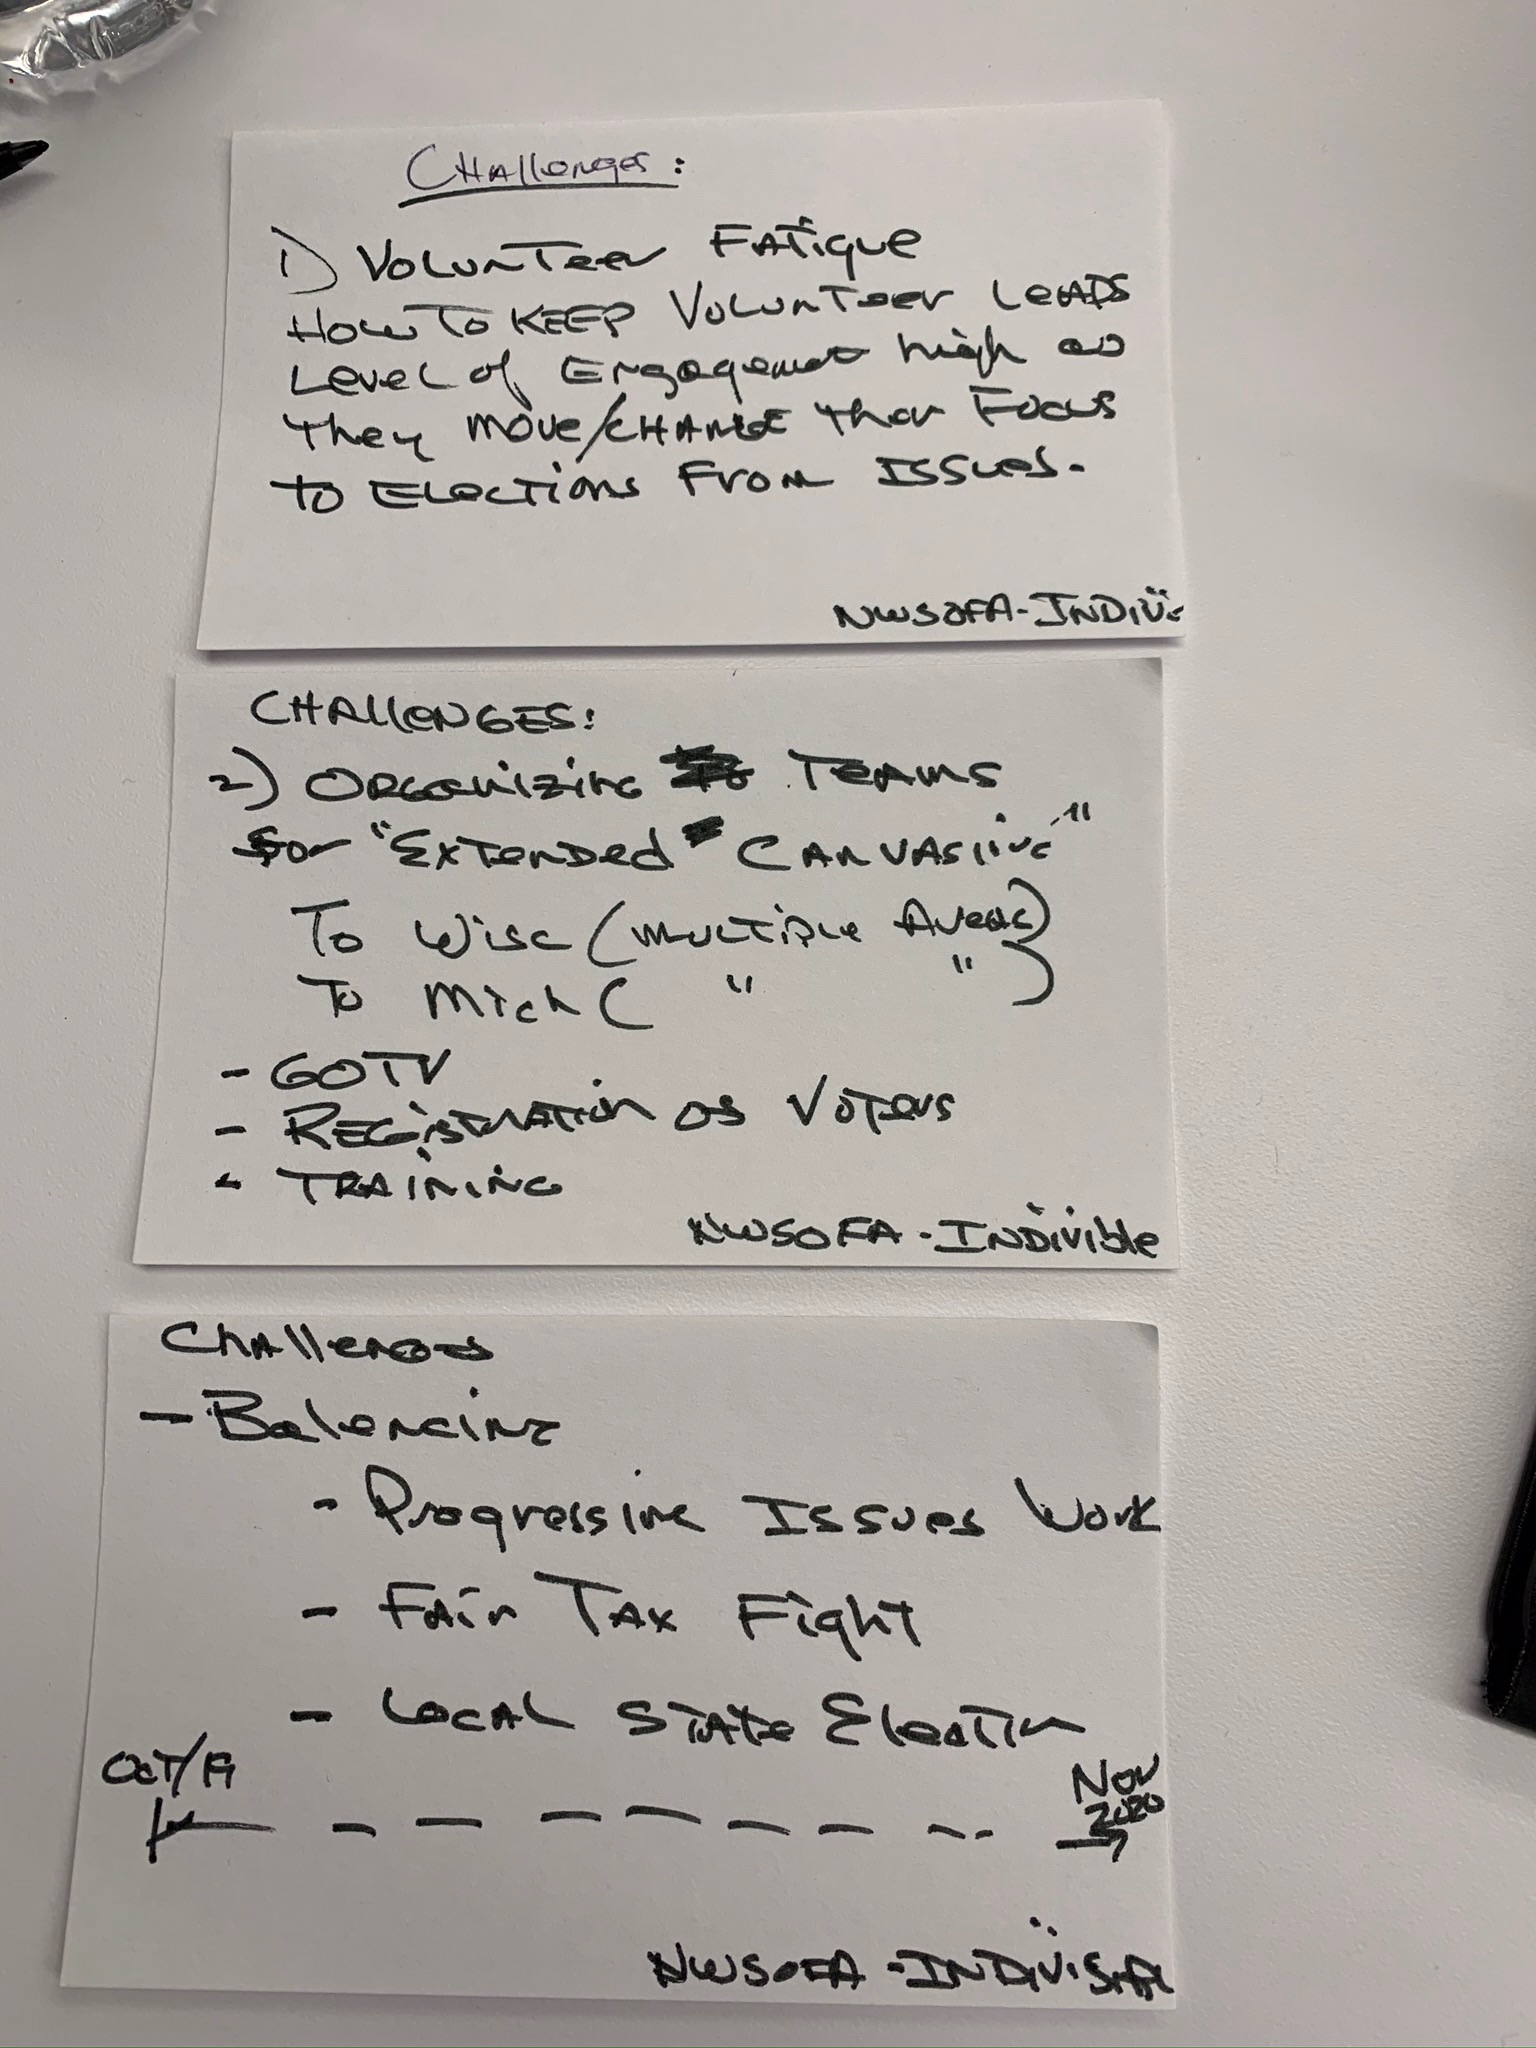 Challenges:
1) Volunteer Fatigue
How to keep Volunteer Leads
Level of Engagement high as
they move/change their Focus
to Elections From Issues.
NWSOFA-INDIVI
CHALLENGES:
2) Organizing Teams
for "Extended Canvasing"
To Wisc (multiple Areas)
To Mich ( " " )
- GOTV
- Registration of Voters
- TRAINING
NWSOFA - INDIVIble
Challenges
- Balencing
- Progressive Issues Work
- Fair Tax Fight
- Local State Election
Oct/19
Nov
2020
NWSOFA - INDIVISIBL